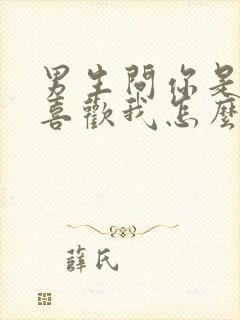 男生問你是
喜歡我怎麼
薛氏